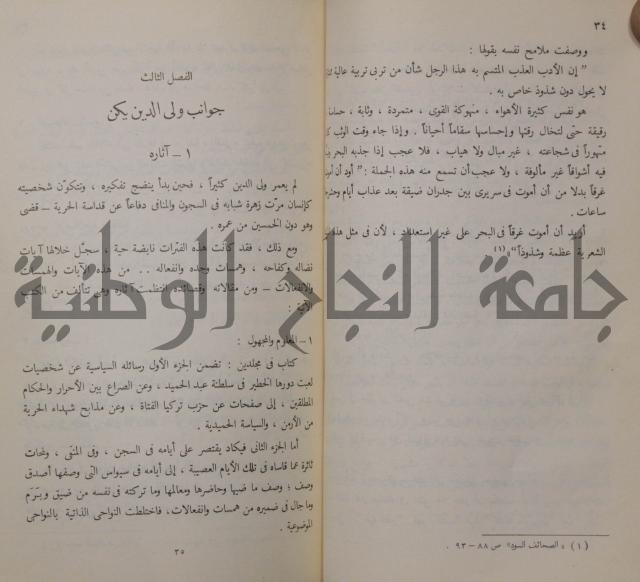 ٣٤
ووصفت ملامح نفسه بقولها :
" إن الأدب العذب المتسم به هذا الرجل شأن من تربى تربية عالية
لا يحول دون شذوذ خاص به .
هو نفس كثيرة الأهواء ، منهوكة القوى ، متمردة ، وثابة ،
رقيقة حتى لتخال رقتها وإحساسها سقاماً أحياناً . وإذا جاء وقت الوثب
متهوراً فى شجاعته ، غير مبال ولا هياب ، فلا عجب إذا جذبه البحر
فيه أشواقاً غير مألوفة ، ولا عجب أن تسمع منه هذه الجملة : " أود أن
غرقاً بدلا من أن أموت فى سريرى بين جدران ضيقة بعد عذاب أيام
ساعات .
أريد أن أموت غرقاً فى البحر على غير استعداد ، لأن فى مثل هذه
الشعرية عظمة وشذوذاً " (١)
(١) « الصحائف السود » ص ٨٨ – ٩٣ .
الفصل الثالث
جوانب ولى الدين يكن
١ – آثاره
لم يعمر ولى الدين كثيراً ، فحين بدأ ينضج تفكيره ، وتتكوّن شخصيته
كإنسان مرّت زهرة شبابه فى السجون والمنافى دفاعاً عن قداسة الحرية – قضى
وهو دون الخمسين من عمره .
ومع ذلك ، فقد كانت هذه الفترات نابضة حية ، سجل خلالها آيات
نضاله وكفاحه ، وهمسات وجده وانفعاله .. من هذه الآيات والهمسات
والانفعالات – ومن مقالاته وقصائده انتظمت آثاره وهى تتألف من الكتب
الآتية :
١ – المعلوم والمجهول :
كتاب فى مجلدين : تضمن الجزء الأول رسائله السياسية عن شخصيات
لعبت دورها الخطير فى سلطنة عبد الحميد ، وعن الصراع بين الأحرار والحكام
المطلقين ، إلى صفحات عن حزب تركيا الفتاة ، وعن مذابح شهداء الحرية
من الأرمن ، والسياسة الحميدية .
أما الجزء الثانى فيكاد يقتصر على أيامه فى السجن ، وفى المنفى ، ولمحات
ثائرة عما قاساه فى تلك الأيام العصيبة ، إلى أيامه فى سيواس التى وصفها أصدق
وصف ؛ وصف ماضيها وحاضرها ومعالمها وما تركته فى نفسه من ضيق وبَرَم
وما جال فى ضميره من همسات وانفعالات ، فاختلطت النواحى الذاتية بالنواحى
الموضوعية .
٣٥
جامعة النجاح الوطنية